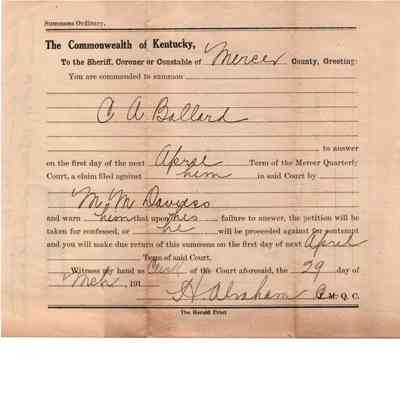 Summons Ordinary.
The Commonwealth of Kentucky,
To the Sheriff, Coroner or Constable of Mercer County, Greeting:
You are commanded to summon
C A Ballard
to answer
on the first day of the next April Term of the Mercer Quarterly
Court, a claim filed against him in said Court by
M M Daviess
and warn him that upon his failure to answer, the petition will be
taken for confessed, or he will be proceeded against for contempt
and you will make due return of this summons on the first day of next April
Term of said Court.
Witness my hand as Clerk of the Court aforesaid, the 29 day of
Mch, 191
H. Abraham C. M. Q. C.
The Herald Print